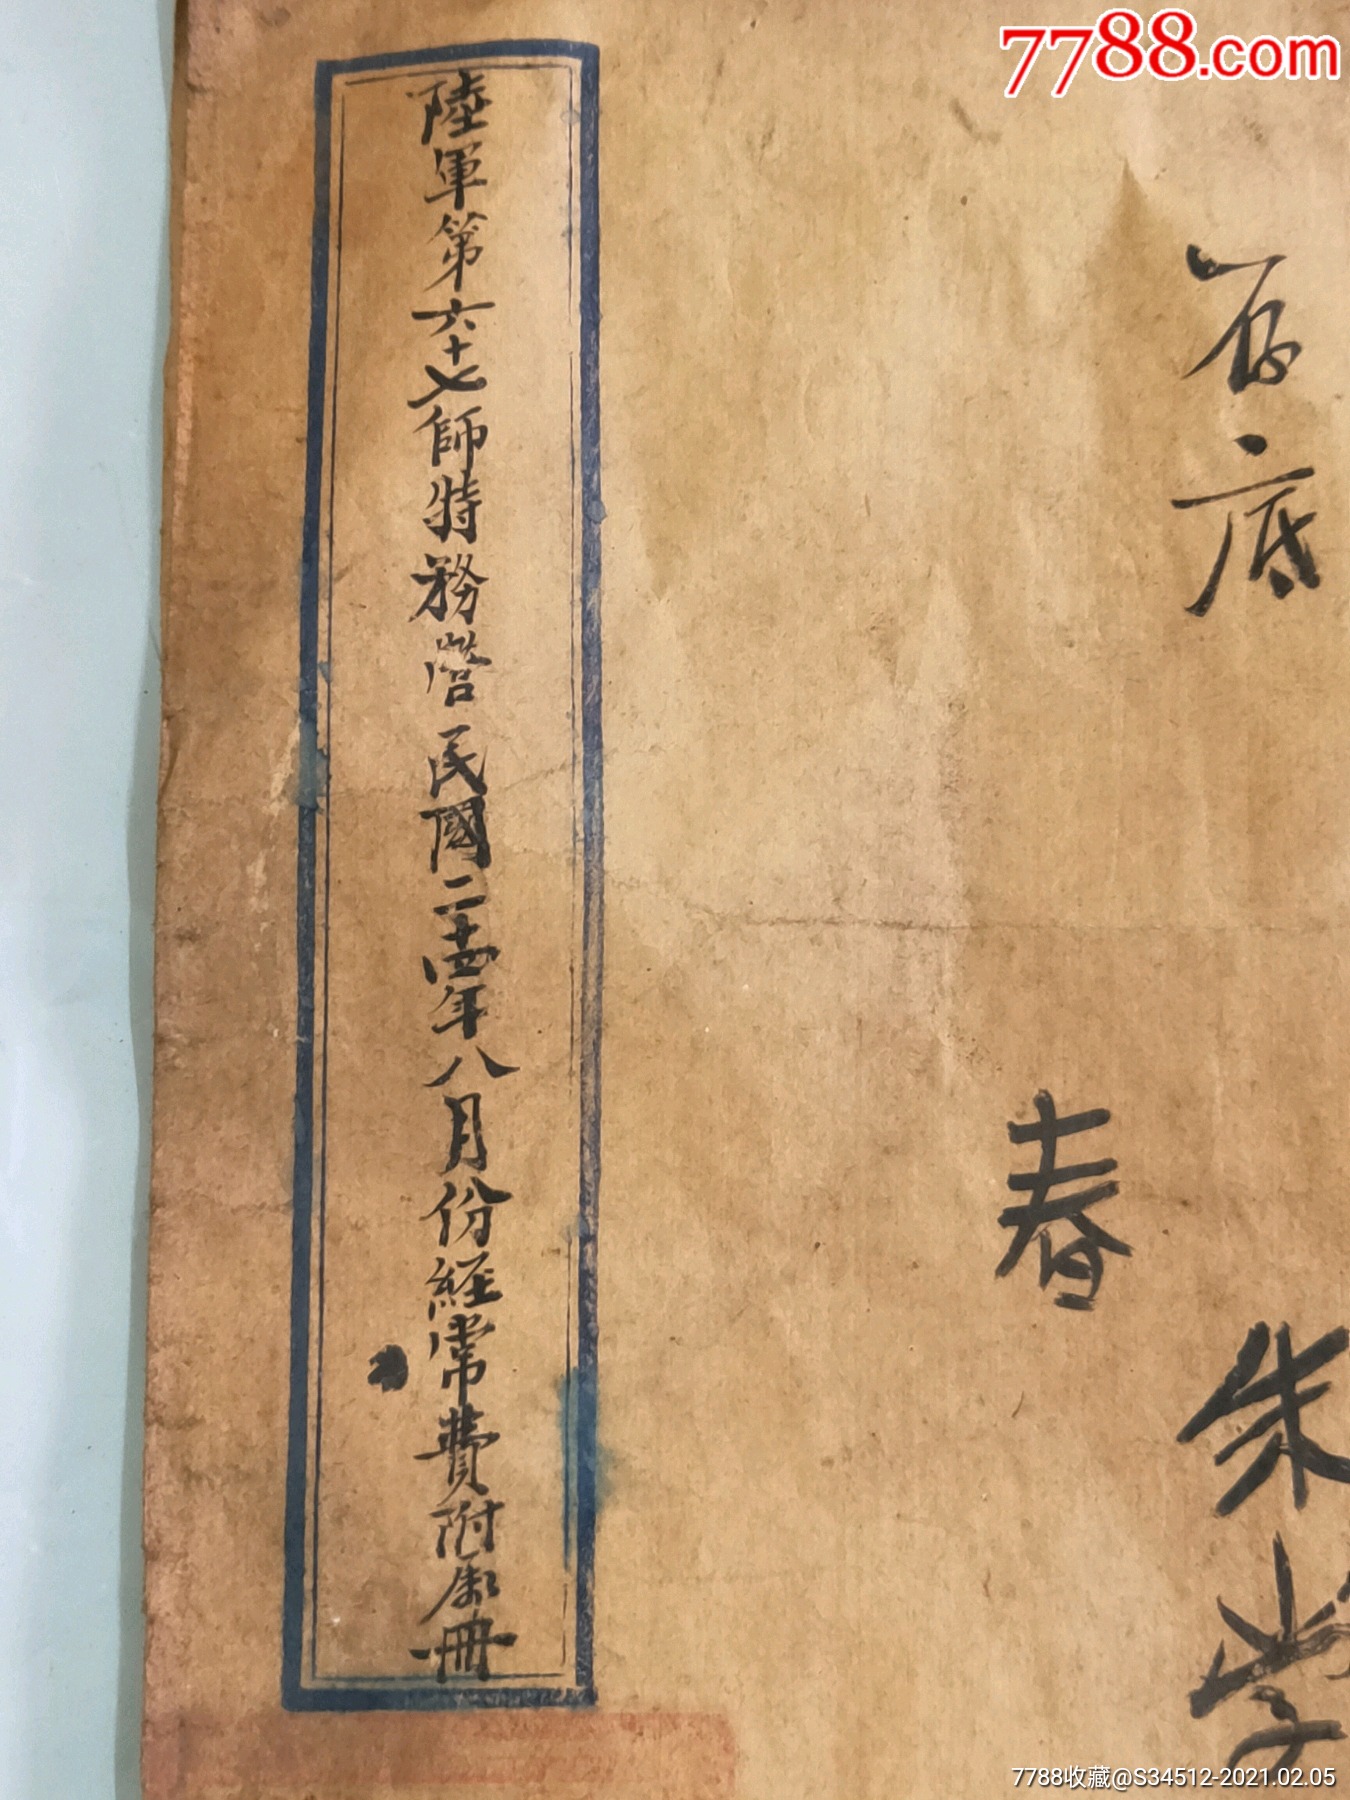 7788.com
存底
陸軍第六十七師特務營民國二十四年八月份經常費附屬冊
春
朱
学
7788收藏@S34512-2021.02.05